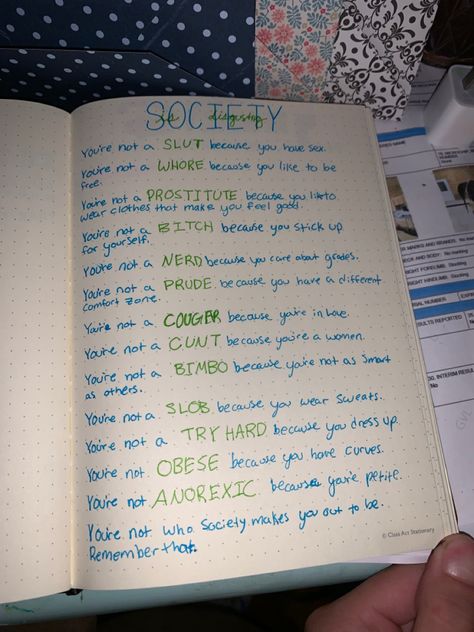 SOCIETY
is disgusting
You're not a SLUT because you have sex.
You're not a WHORE because you like to be
free.
You're not a PROSTITUTE because you like to
wear clothes that make you feel good.
You're not a BITCH because you stick up
for yourself.
You're not a NERD because you care about grades.
You're not a PRUDE because you have a different
comfort zone.
You're not a COUGER because you're in love.
You're not a CUNT because you're a women.
You're not a BIMBO because you're not as smart
as others.
You're not a SLOB because you wear sweats.
You're not a TRY HARD because you dress up.
You're not OBESE because you have curves.
You're not ANOREXIC because you're petite.
You're not who society makes you out to be.
Remember that.
© Class Act Stationary
MARKS AND BRANDS
No marking
RIGHT FORELIMB
RIGHT HINDLIMB
SERIAL NUMBER
RESULTS REPORTED
INTERIM RESU
No